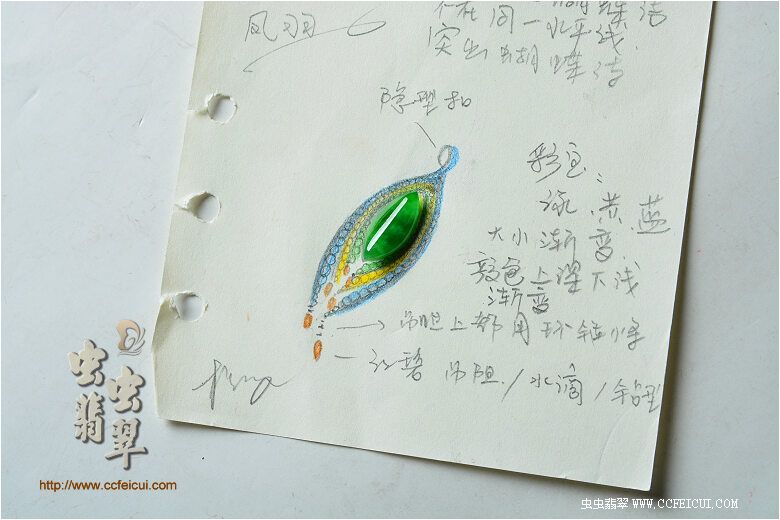 在同一水平线
突出蝴蝶结
凤羽
隐型扣
彩宝:
绿.黄.蓝
大小渐变
颜色上深下浅
渐变
吊胆上部用环链小串
红碧 吊胆/水滴/
虫虫翡翠
http://www.ccfeicui.com
虫虫翡翠 WWW.CCFEICUI.COM